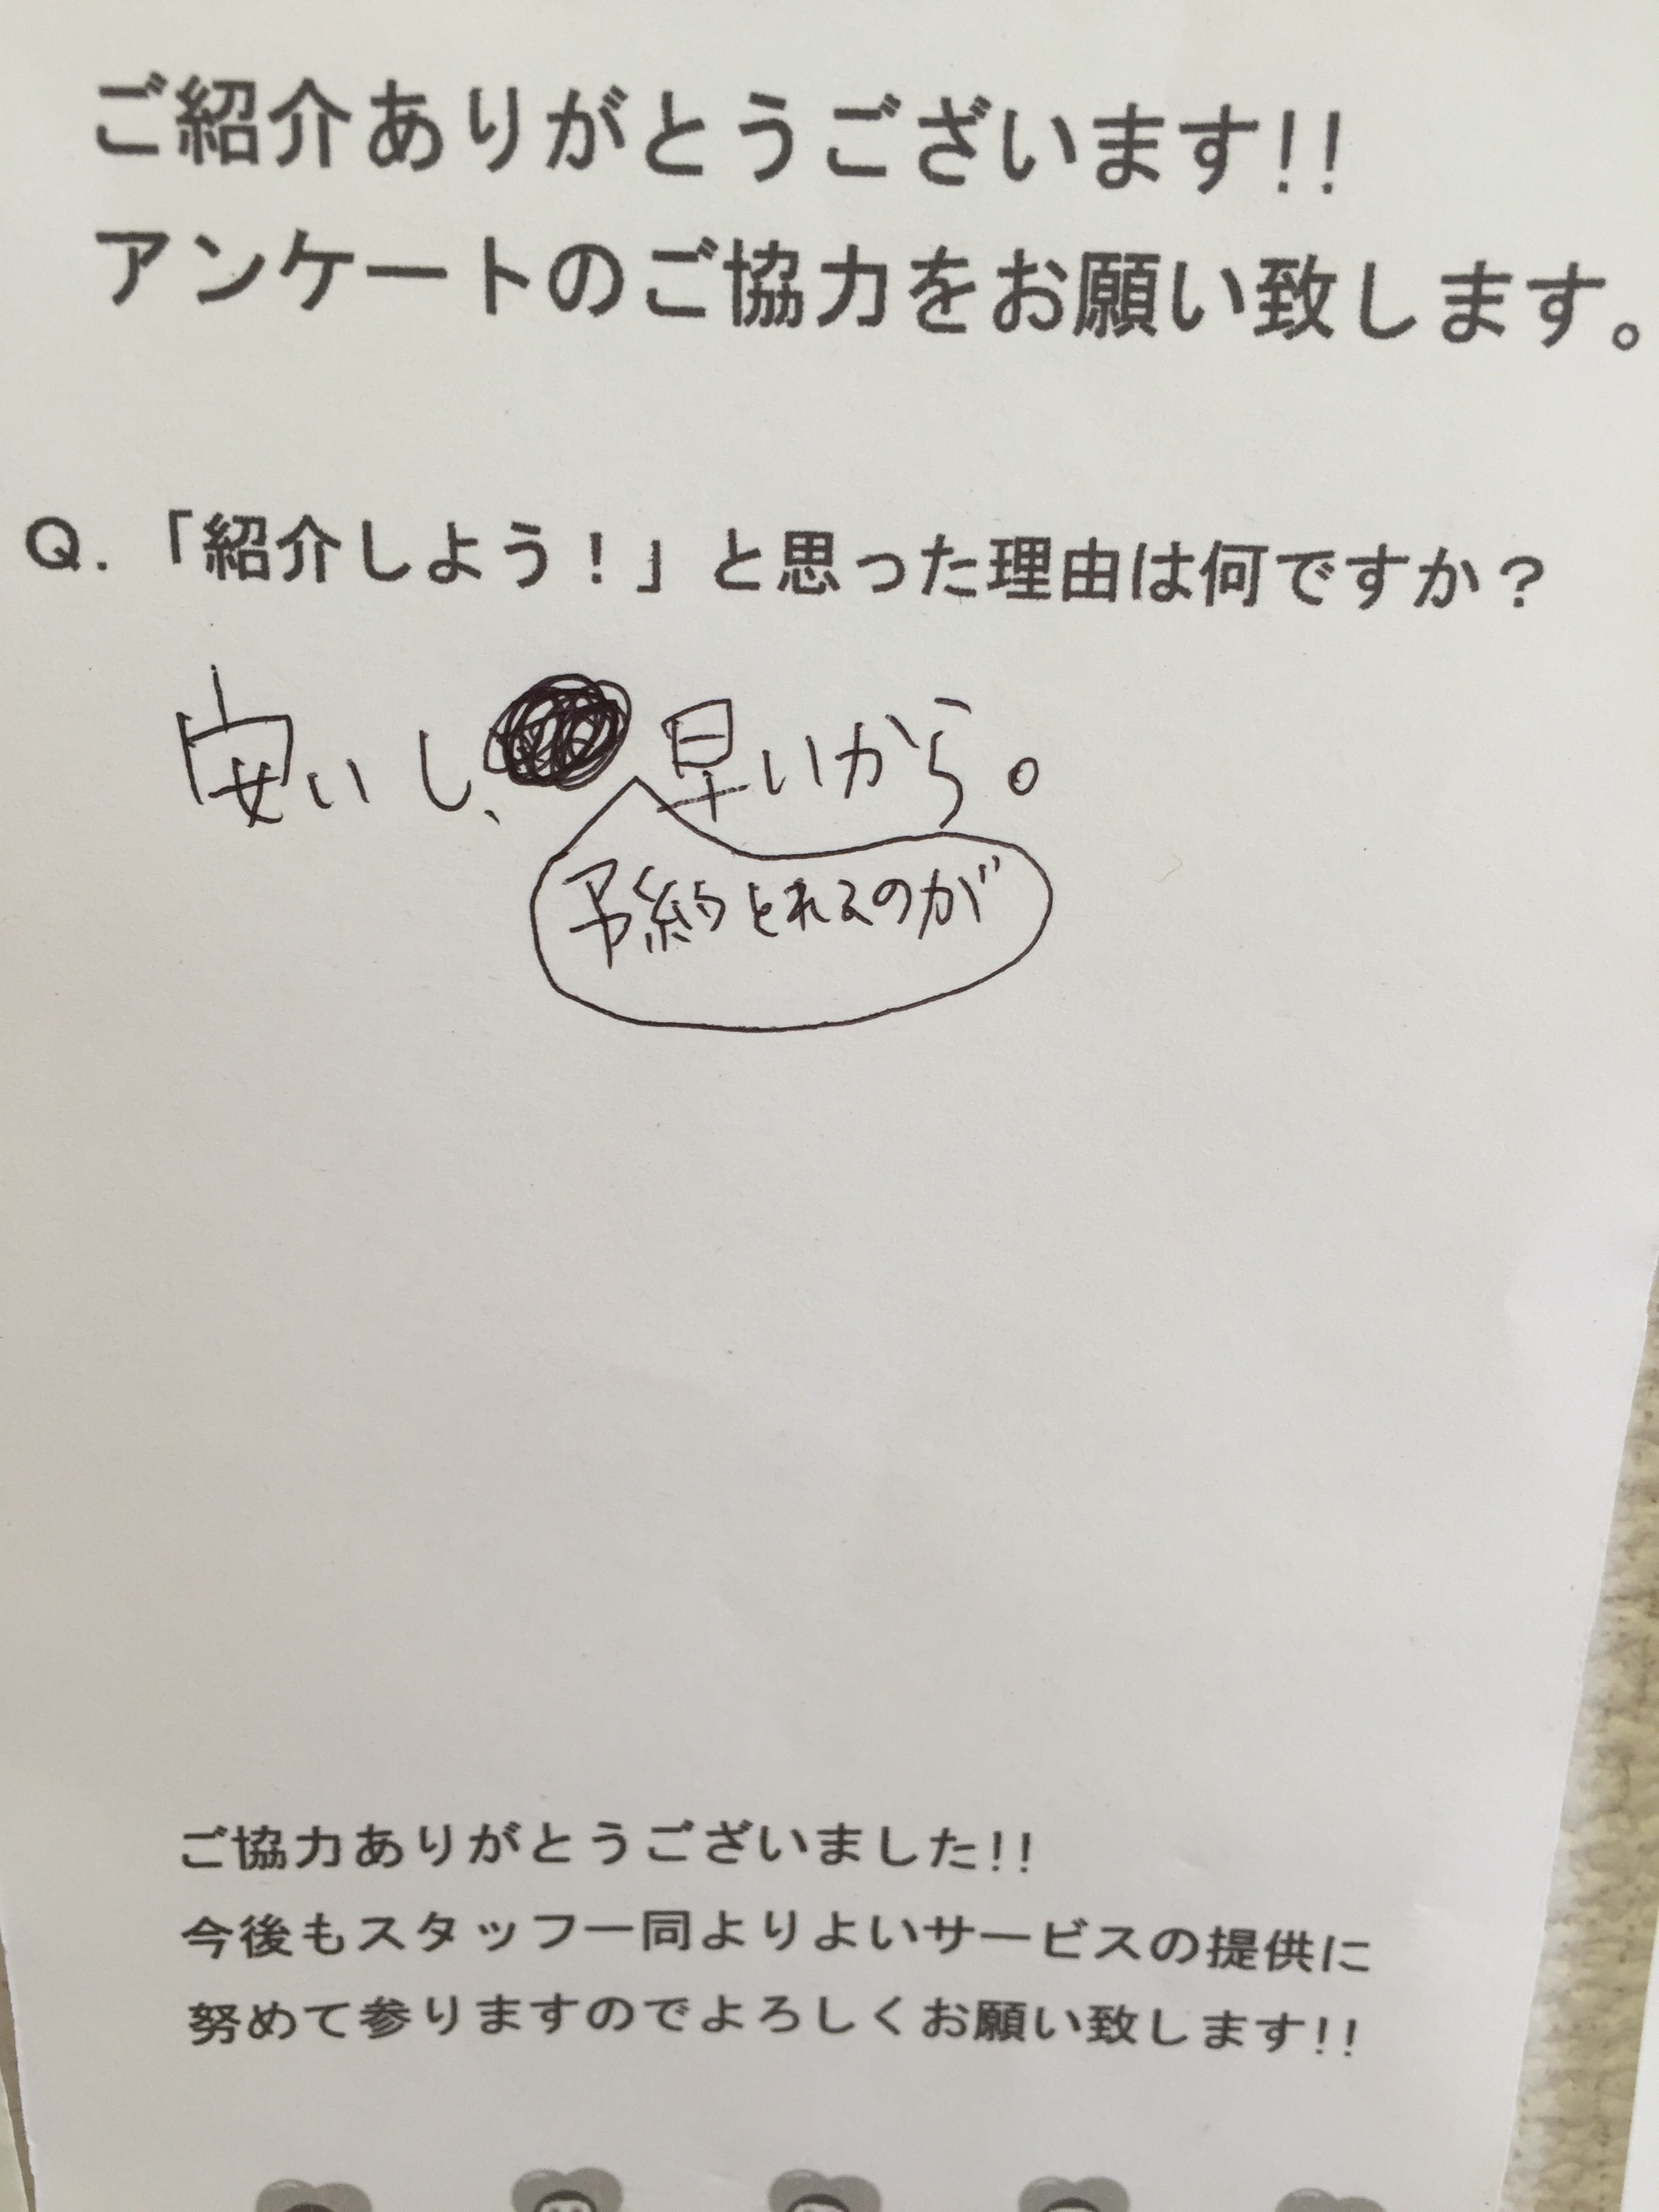 ご紹介ありがとうございます!!
アンケートのご協力をお願い致します。
Q.「紹介しよう!」と思った理由は何ですか?
安いし、早いから。
予約とれるのが
ご協力ありがとうございました!!
今後もスタッフ一同よりよいサービスの提供に
努めて参りますのでよろしくお願い致します!!